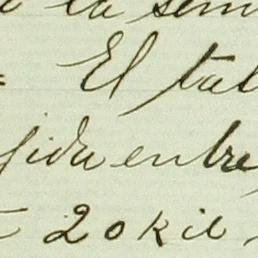 la sem
El tal
gida entre
20 kil